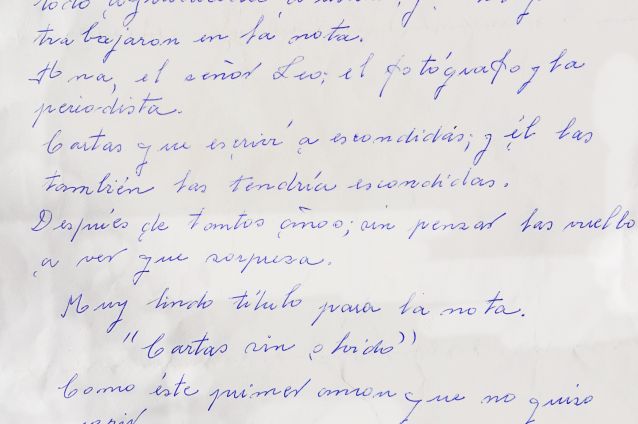 trabajaron en la nota.
Ana, el señor Leo; el fotógrafo y la
periodista.
Cartas que escriví a escondidas; y él las
también las tendría escondidas.
Después de tantos años; sin pensar las vuelbo
a ver que sorpresa.
Muy lindo título para la nota.
"Cartas sin olvido"
Como éste primer amor que no quiso